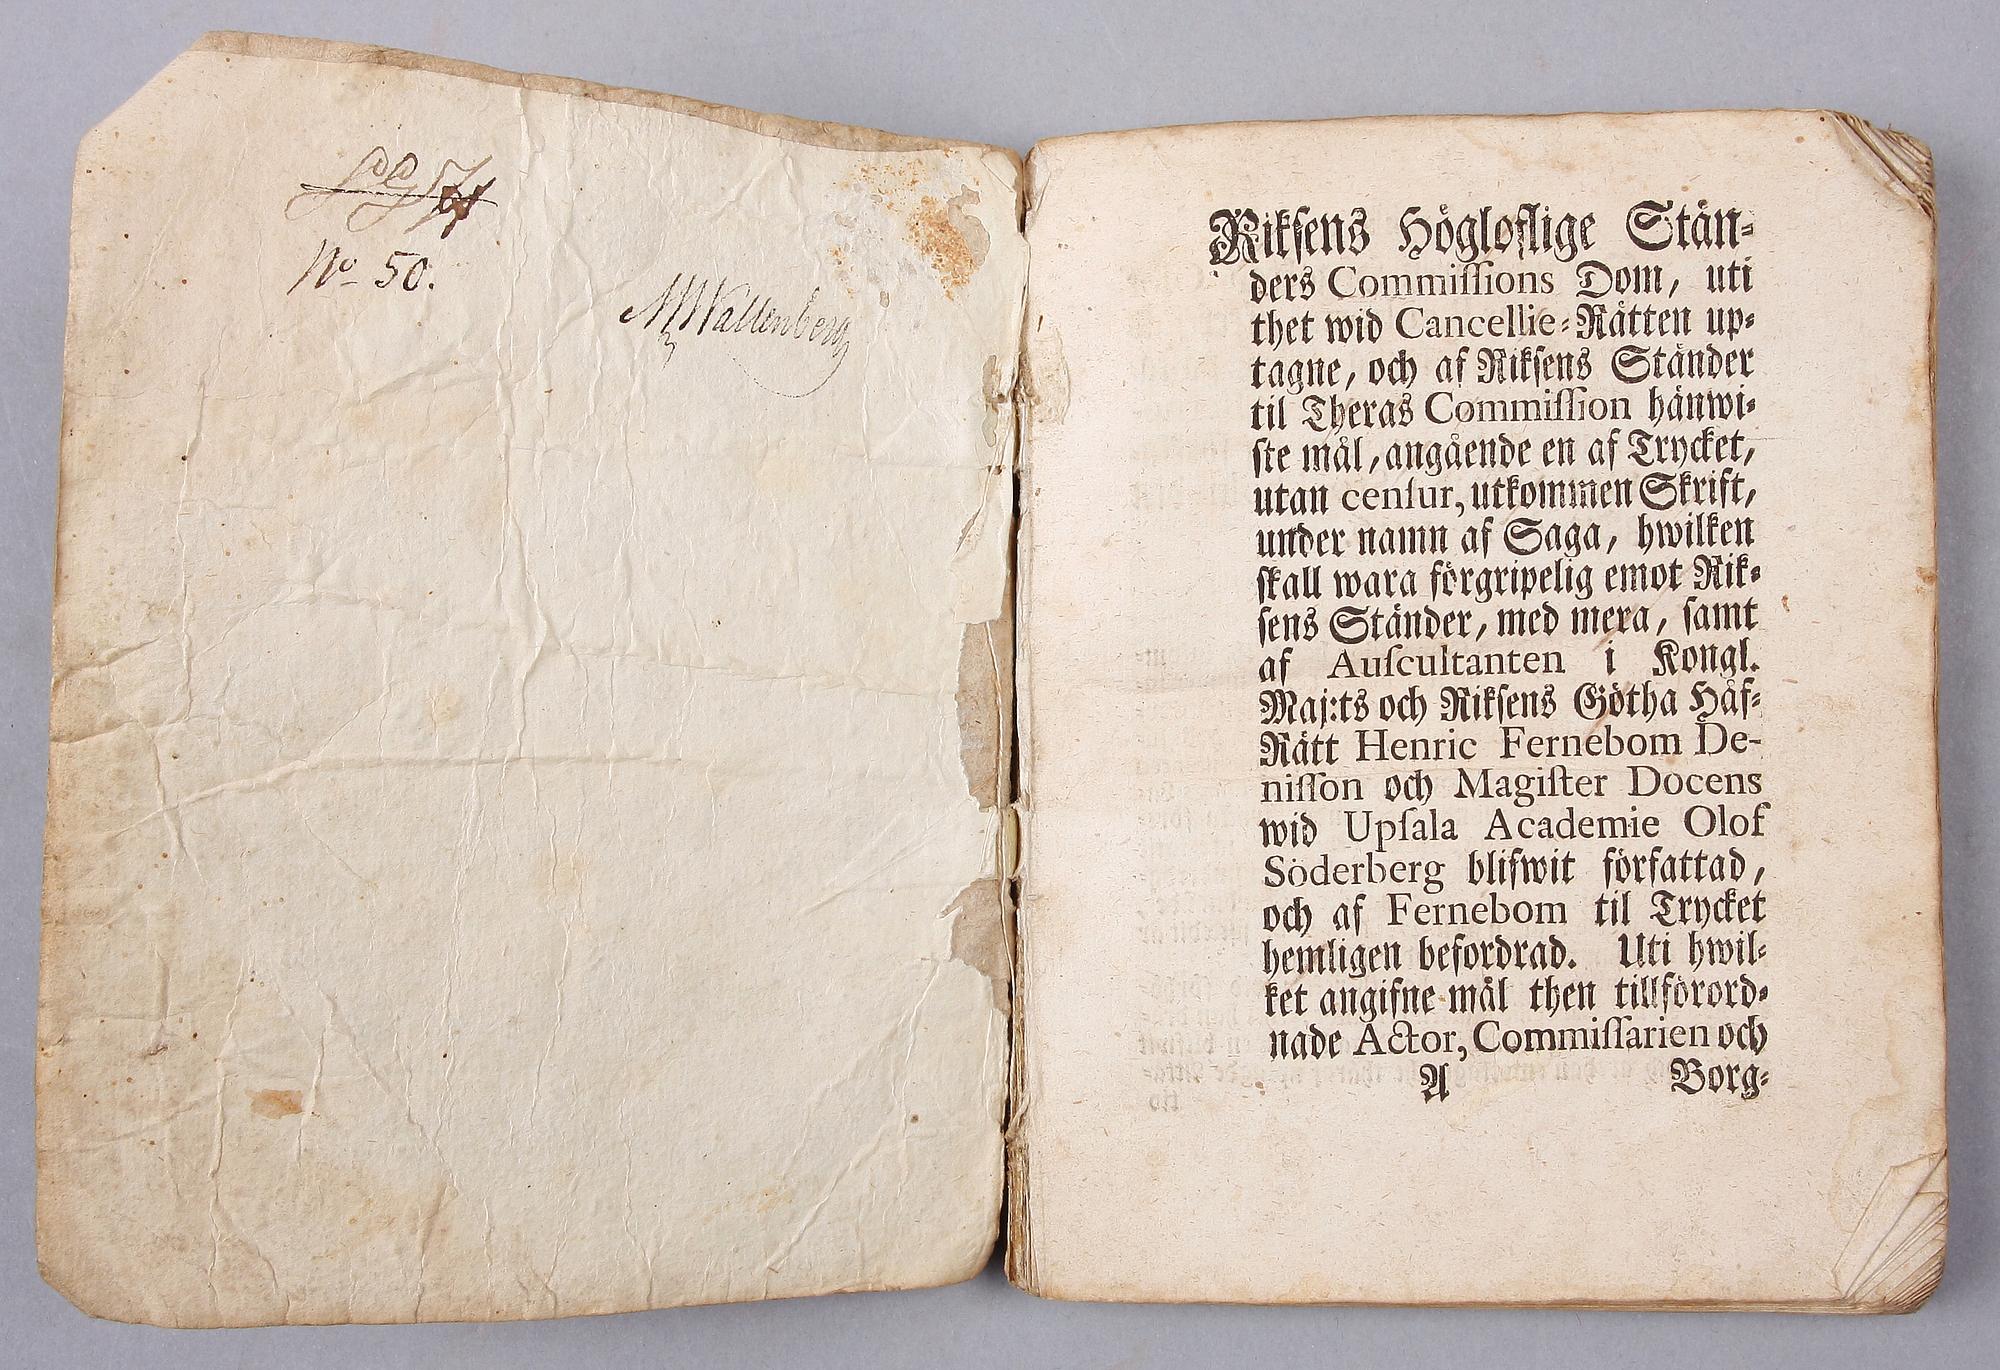 No 50.
MWallenberg
Riksens Högloflige Stän-
ders Commissions Dom, uti
thet wid Cancellie-Rätten up-
tagne, och af Riksens Ständer
til Theras Commission hänwi-
ste mål, angående en af Trycket,
utan censur, utkommen Skrift,
under namn af Saga, hwilken
skall wara förgripelig emot Rik-
sens Ständer, med mera, samt
af Auscultanten i Kongl.
Maj:ts och Riksens Götha Håf-
Rätt Henric Fernebom De-
nisson och Magister Docens
wid Upsala Academie Olof
Söderberg blifwit författad,
och af Fernebom til Trycket
hemligen befordrad. Uti hwil-
ket angifne mål then tillförord-
nade Actor, Commissarien och
A Borg-